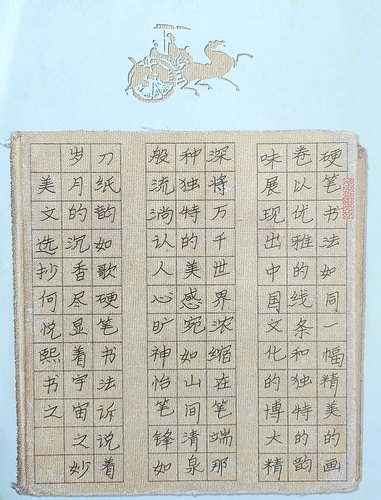 硬笔书法如同一幅精美的画
卷以优雅的线条和独特的韵
味展现出中国文化的博大精
深将万千世界浓缩在笔端那
种独特的美感宛如山间清泉
般流淌认人心旷神怡笔锋如
刀纸韵如歌硬笔书法诉说着
岁月的沉香尽显着宇宙之妙
美文选抄何悦熙书之